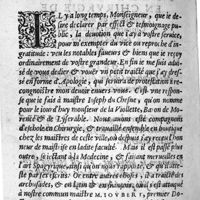 IL y a long temps, Monseigneur, que ie desire declarer par effect & tesmoignage publique,
la deuotion que i'ay à vostre seruice,
pour m'exempter du vice ou reproche d'ingratitude:
veu les notables faueurs & bien que ie reçoy
ordinairement de vostre grandeur. En fin ie me suis aduisé
de vous dedier & vouër vn petit traicté que i'ay dressé
en forme d'Apologie, qui seruira de protestation
cognoistre mon deuoir enuers vous. C'est vne response
que ie fais à maistre Ioseph du Chesne, qui se fait
nommer pour le iour d'huy monsieur de la Violette, Baron de Morencé
& de Lyserable. Nous auons esté compagnons
d'eschole en Chirurgie, & trauaillé ensemble en boutique
chez les maistres de ceste ville, où
mes en ladite faculté. Mais il est passé plus
outre, se iettant à la Medecine, & faisant merueilles en
l'art Spagyrique, ainsi qu'on nous rapporte, & traicté
des archusades, & en latin & en françois, où il s'est attaqué
à nostre commun maistre M. IOVBERT, premier Do-